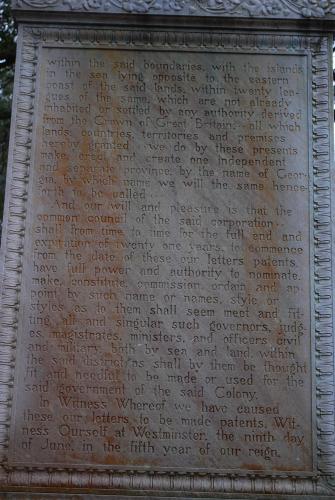 within the said boundaries, with the islands
in the sea lying opposite to the eastern
coast of the said lands, within twenty lea-
gues of the same, which are not already
inhabited or settled by any authority derived
from the Crown of Great Britain: all which
lands, countries, territories and premises
hereby granted we do by these presents
make, erect and create one independent
and separate province, by the name of Geor-
gia, by which name we will the same hence-
forth to be called.
And our will and pleasure is that the
common council of the said corporation
shall from time to time for the full end and
expiration of twenty one years, to commence
from the date of these our letters patents
have full power and authority to nominate,
make, constitute, commission, ordain and ap-
point, by such name or names, style or
styles as to them shall seem meet and fit-
ting, all and singular such governors, judg-
es, magistrates, ministers, and officers civil
and military, both by sea and land, within
the said districts as shall by them be thought
fit and needful to be made or used for the
said government of the said Colony.
In Witness Whereof we have caused
these our letters to be made patents. Wit-
ness Ourself at Westminster, the ninth day
of June, in the fifth year of our reign.